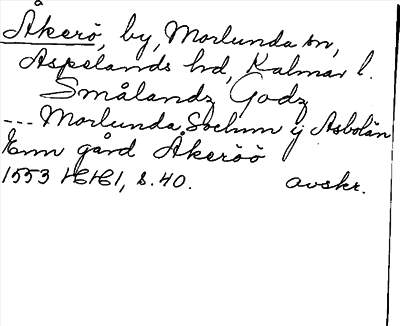 Åkerö, by, Morlunda sn,
Aspelands hd, Kalmar l.
Smålandz Godz
--- Morlunda Sochnn ij Asbolän
Enn gård Åkeröö
1553 HH1, s. 40. avskr.